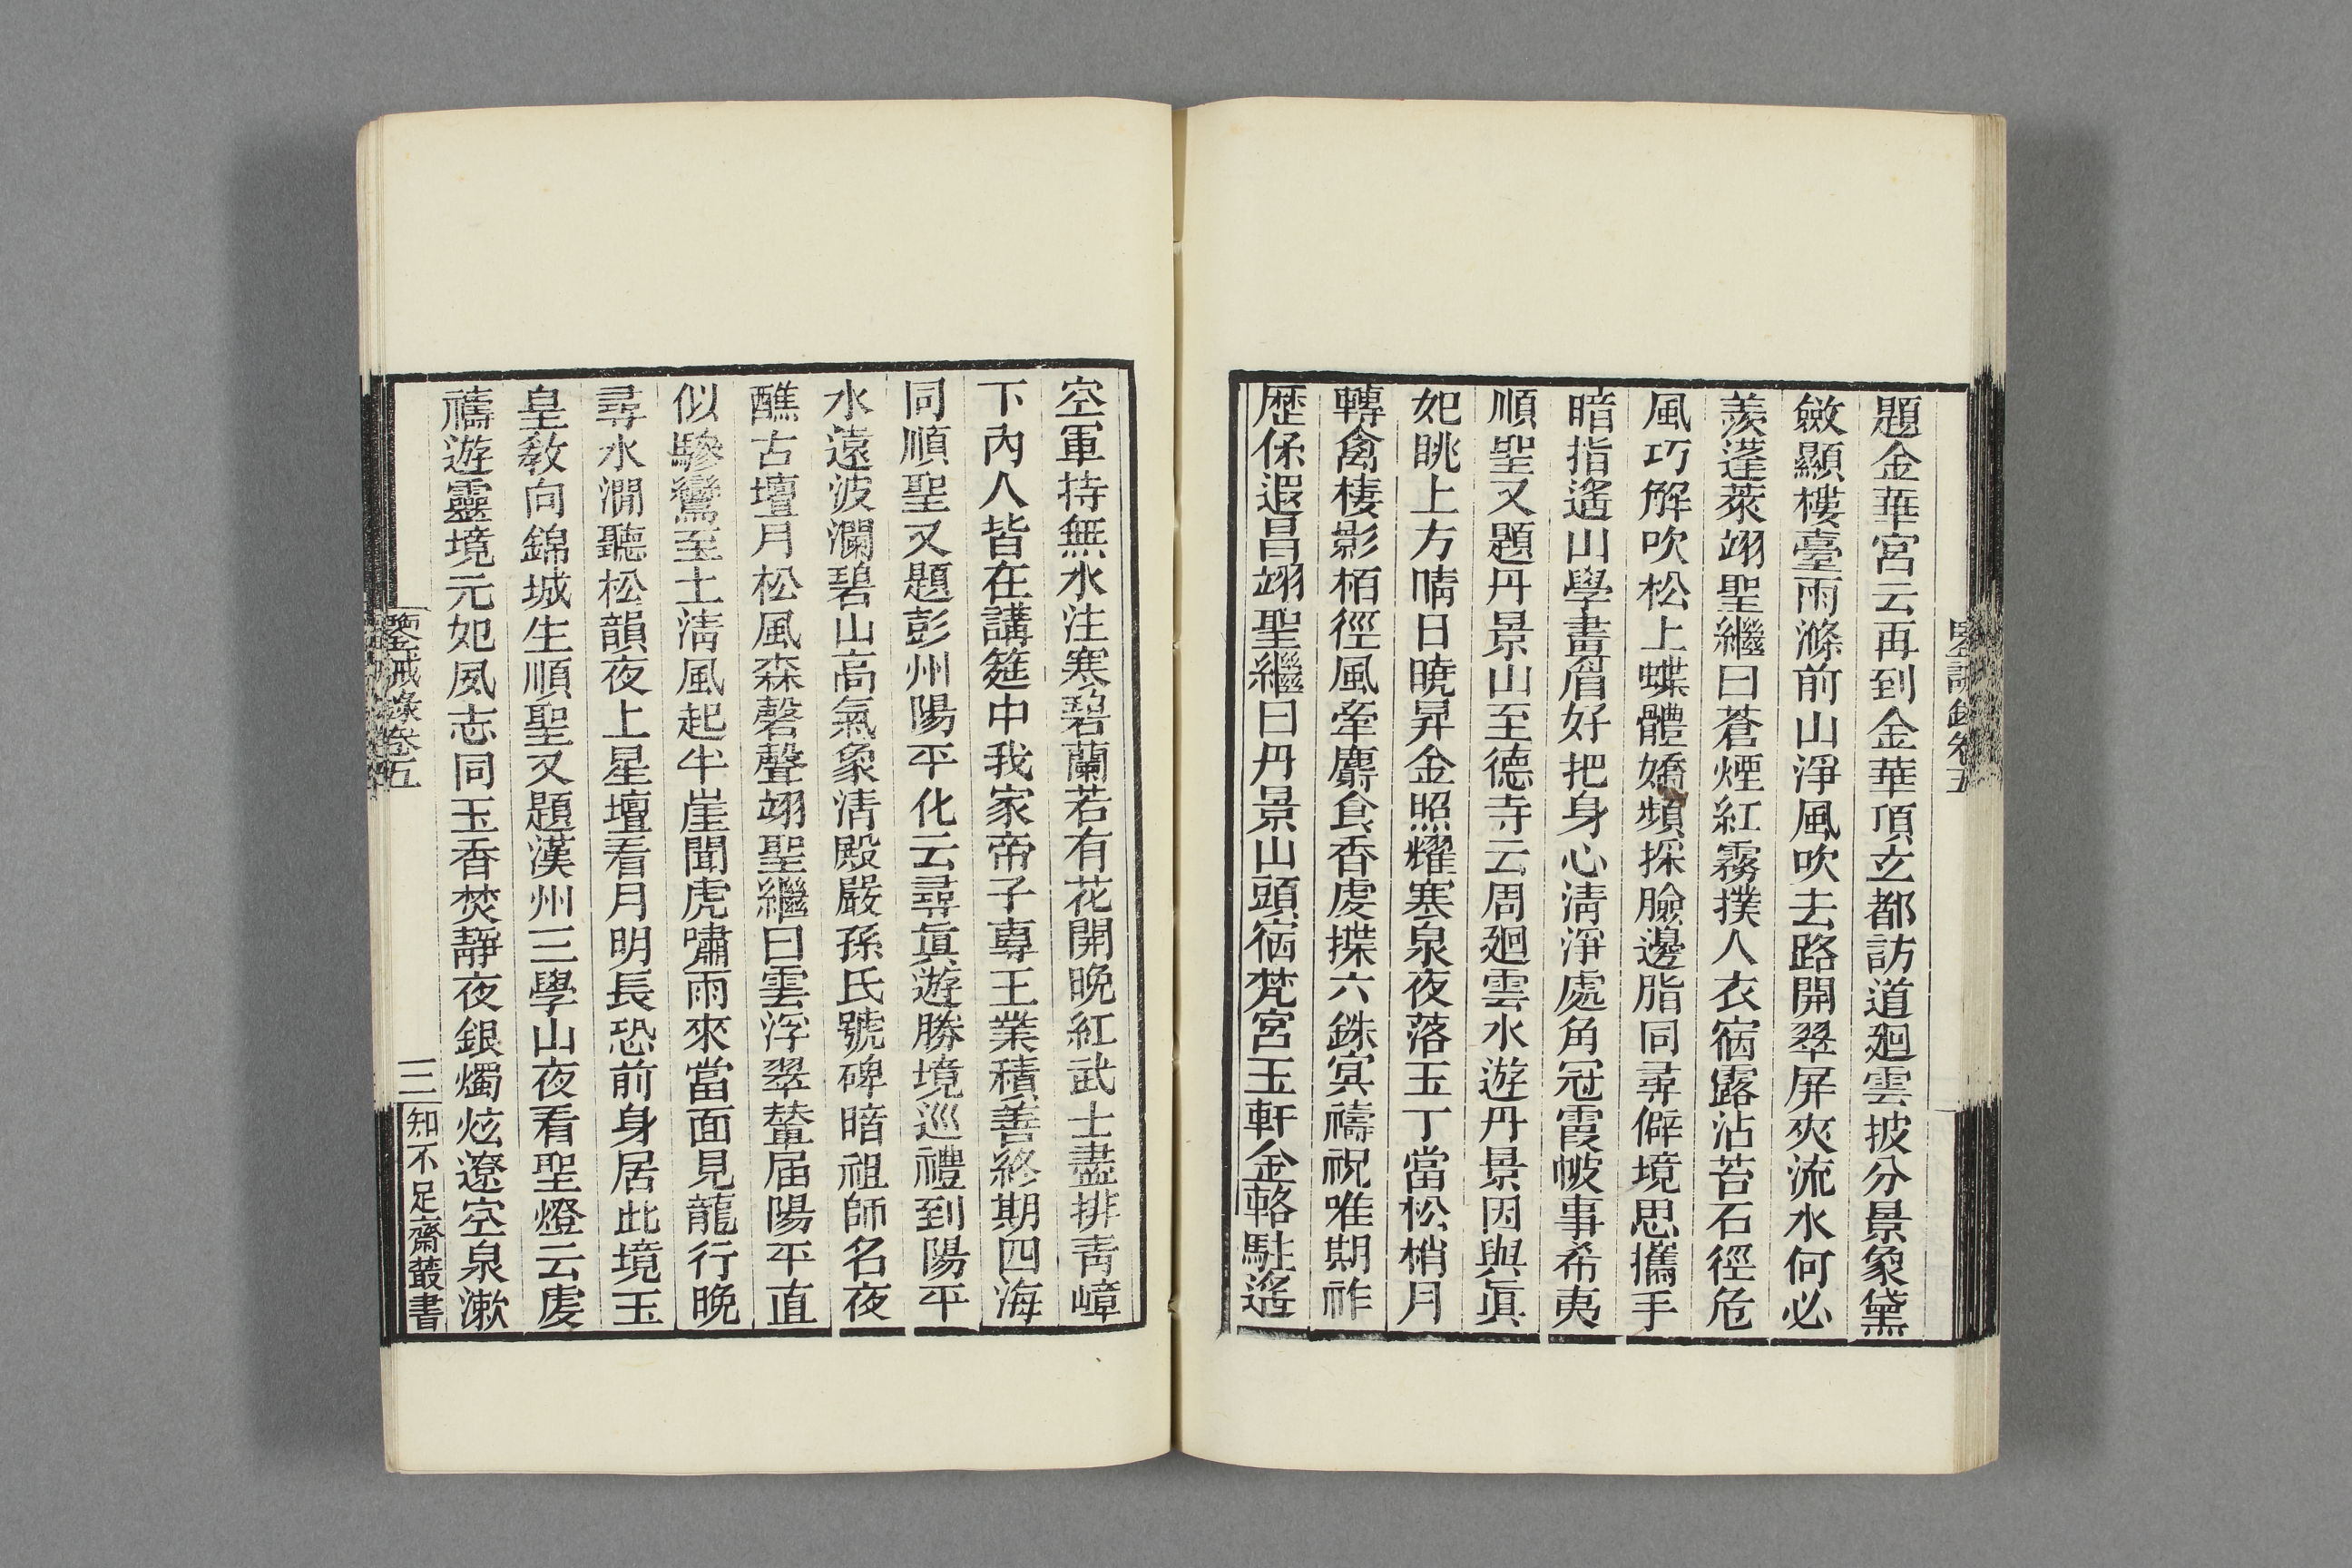 題金華宮云再到金華頂玄都訪道廻雲披分景象黛
斂顯樓臺雨滌前山淨風吹去路開翠屏夾流水何必
羨蓬萊翊聖繼曰蒼煙紅霧撲人衣宿露沾苔石徑危
風巧解吹松上蝶體嬌頻採臉邊脂同尋僻境思攜手
暗指遙山學畫眉好把身心清淨處角冠霞帔事希夷
順聖又題丹景山至德寺云周廻雲水遊丹景因與眞
妃眺上方晴日曉昇金照耀寒泉夜落玉丁當松梢月
轉禽棲影栢徑風牽麝食香虔揲六銖冥禱祝唯期祚
歷保遐昌翊聖繼曰丹景山頭宿梵宮玉軒金輅駐遙
空軍持無水注寒碧蘭若有花開晚紅武士盡排青嶂
下內人皆在講筵中我家帝子專王業積善終期四海
同順聖又題彭州陽平化云尋眞遊勝境巡禮到陽平
水遠波瀾碧山高氣象清殿嚴孫氏號碑暗祖師名夜
醮古壇月松風森磬聲翊聖繼曰雲浮翠輦届陽平直
似驂鸞至上清風起半崖聞虎嘯雨來當面見龍行晚
尋水澗聽松韻夜上星壇看月明長恐前身居此境玉
皇敎向錦城生順聖又題漢州三學山夜看聖燈云虔
禱遊靈境元妃夙志同玉香焚靜夜銀燭炫遼空泉漱
鑒戒錄卷五
三
知不足齋叢書